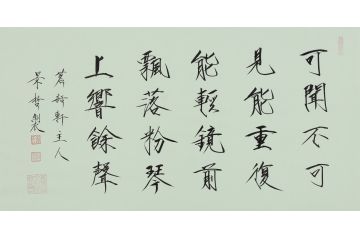 可聞不可
見能重復
能輕鏡前
飄落粉琴
上響餘聲
主人
製